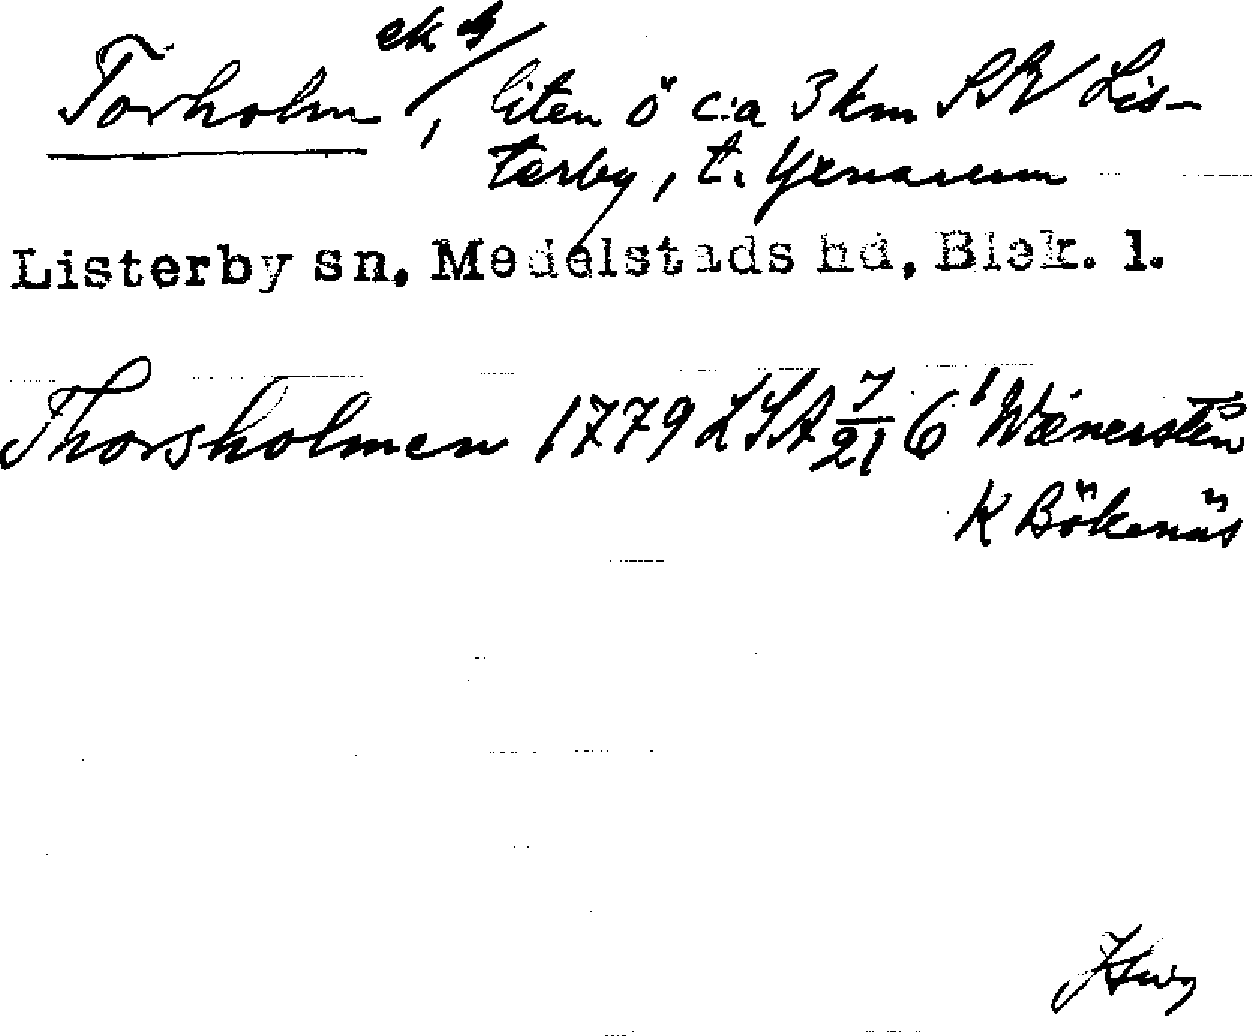 Torholm ek, liten ö c:a 3 km SSV Lis-
terby, t. Gjenarum
Listerby sn, Medelstads hd, Blek. l.
Thorsholmen 1779 LSA J/21 6¹ Wænersten
K Bökenäs